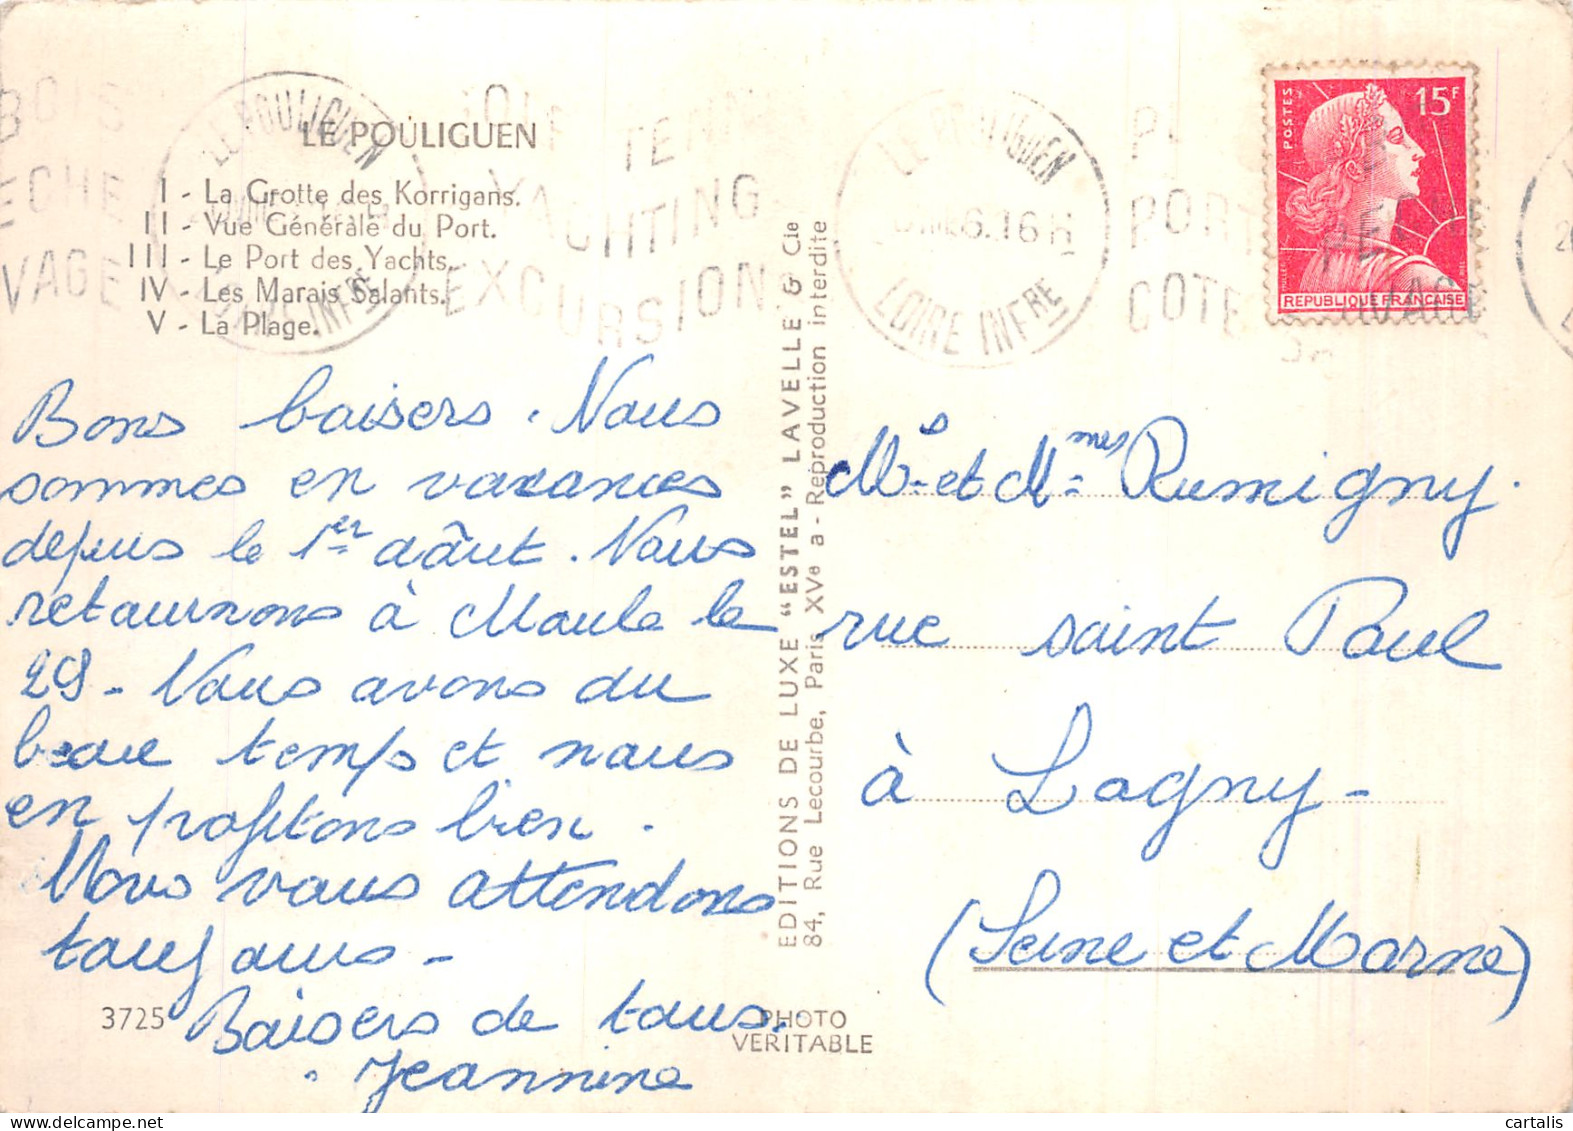 LE POULIGUEN
I - La Grotte des Korrigans.
II - Vue Générale du Port.
III - Le Port des Yachts.
IV - Les Marais Salants.
V - La Plage.
BOIS
ECHE
VAGE
LE POULIGUEN
LOIRE INFRE
TENN
YACHTING
EXCURSION
LE POULIGUEN
6.16H
LOIRE INFRE
PORT
COTE
VAGE
POSTES
15F
REPUBLIQUE FRANÇAISE
Bons baisers. Nous
sommes en vacances
depuis le 1er aôut. Nous
retournons à Maule le
29 - Nous avons du
beau temps et nous
en profitons bien.
Nous vous attendons
toujours -
Baisers de tous.
Jeannine
3725
EDITIONS DE LUXE "ESTEL" LAVELLE & Cie
84, Rue Lecourbe, Paris XVe a - Reproduction interdite
PHOTO
VERITABLE
Mrs et Mmes Rumigny.
rue saint Paul
à Lagny -
(Seine et Marne)
cartalis
www.delcampe.net